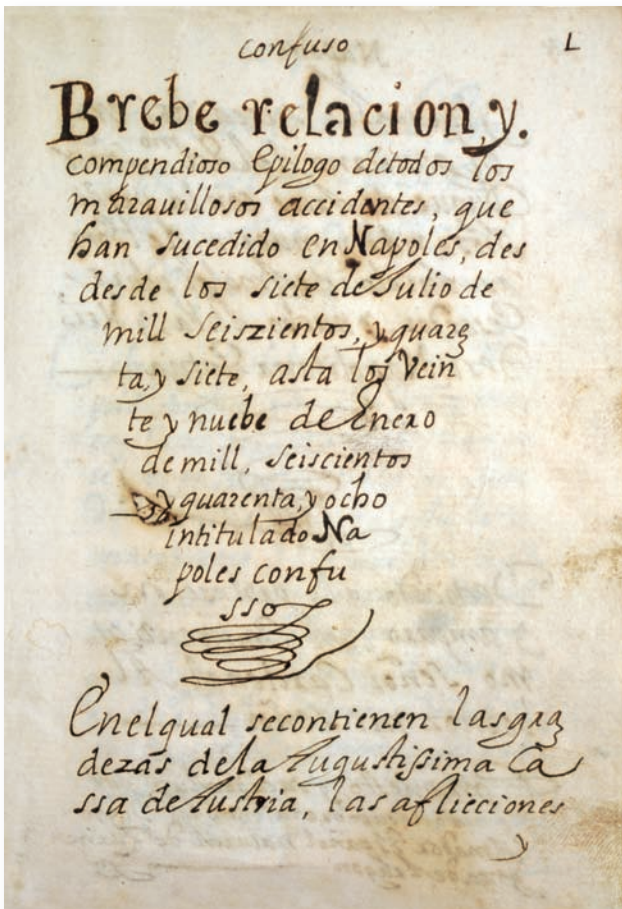 confuso
L
Brebe relacion, y.
compendioso Epilogo detodos los
marauillosos accidentes, que
han sucedido en Napoles, des
desde los siete de Julio de
mill seiszientos, y quare
ta, y siete, asta los Vein
te y nuebe de Enero
de mill, seiscientos
y quarenta, y ocho
intitulado Na
poles confu
sso
Enelqual secontienen lasgra
dezas dela Augustissima Ca
ssa de Austria, las aflicciones
y